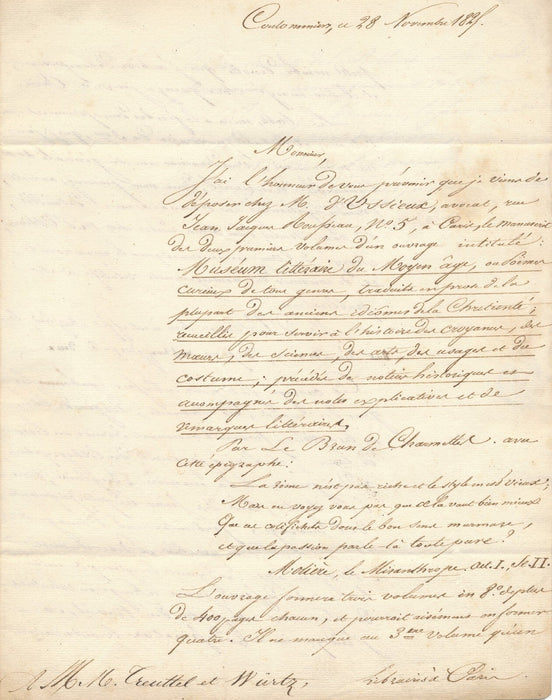 Coulommiers, ce 28 Novembre 182
Monsieur,
J'ai l'honneur de vous prévenir que je viens de
déposer chez M. d'Ussieux, avocat, rue
Jean Jacques Rousseau, No. 5, à Paris, le manuscrit
des deux premiers volumes d'un ouvrage intitulé :
Muséum littéraire du Moyen âge, ou Poëmes
curieux de tous genres, traduits en prose de la
plupart des anciens idiômes de la Chretienté ;
recueillis pour servir à l'histoire des croyances, des
mœurs, des sciences, des arts des usages et du
costume ; précédés de notices historiques et
accompagnés des notes explicatives et de
remarques littéraires,
Par Le Brun de Charmettes. avec
cette épigraphe :
La rime n'est pas riche et le style en est vieux :
Mais ne voyez vous pas que cela vaut bien mieux
Que ces colifichets dont le bon sens murmure,
et que la passion parle là toute pure ?
Molière, le Misanthrope, Act. I, Sc. II.
L'ouvrage formera trois volumes in 8o. de plus
de 400 pages chacun, et pourrait aisément en former
quatre. Il ne manque au 3me volume qu'un
A M. M. Treuttel et Würtz, Libraires à Paris